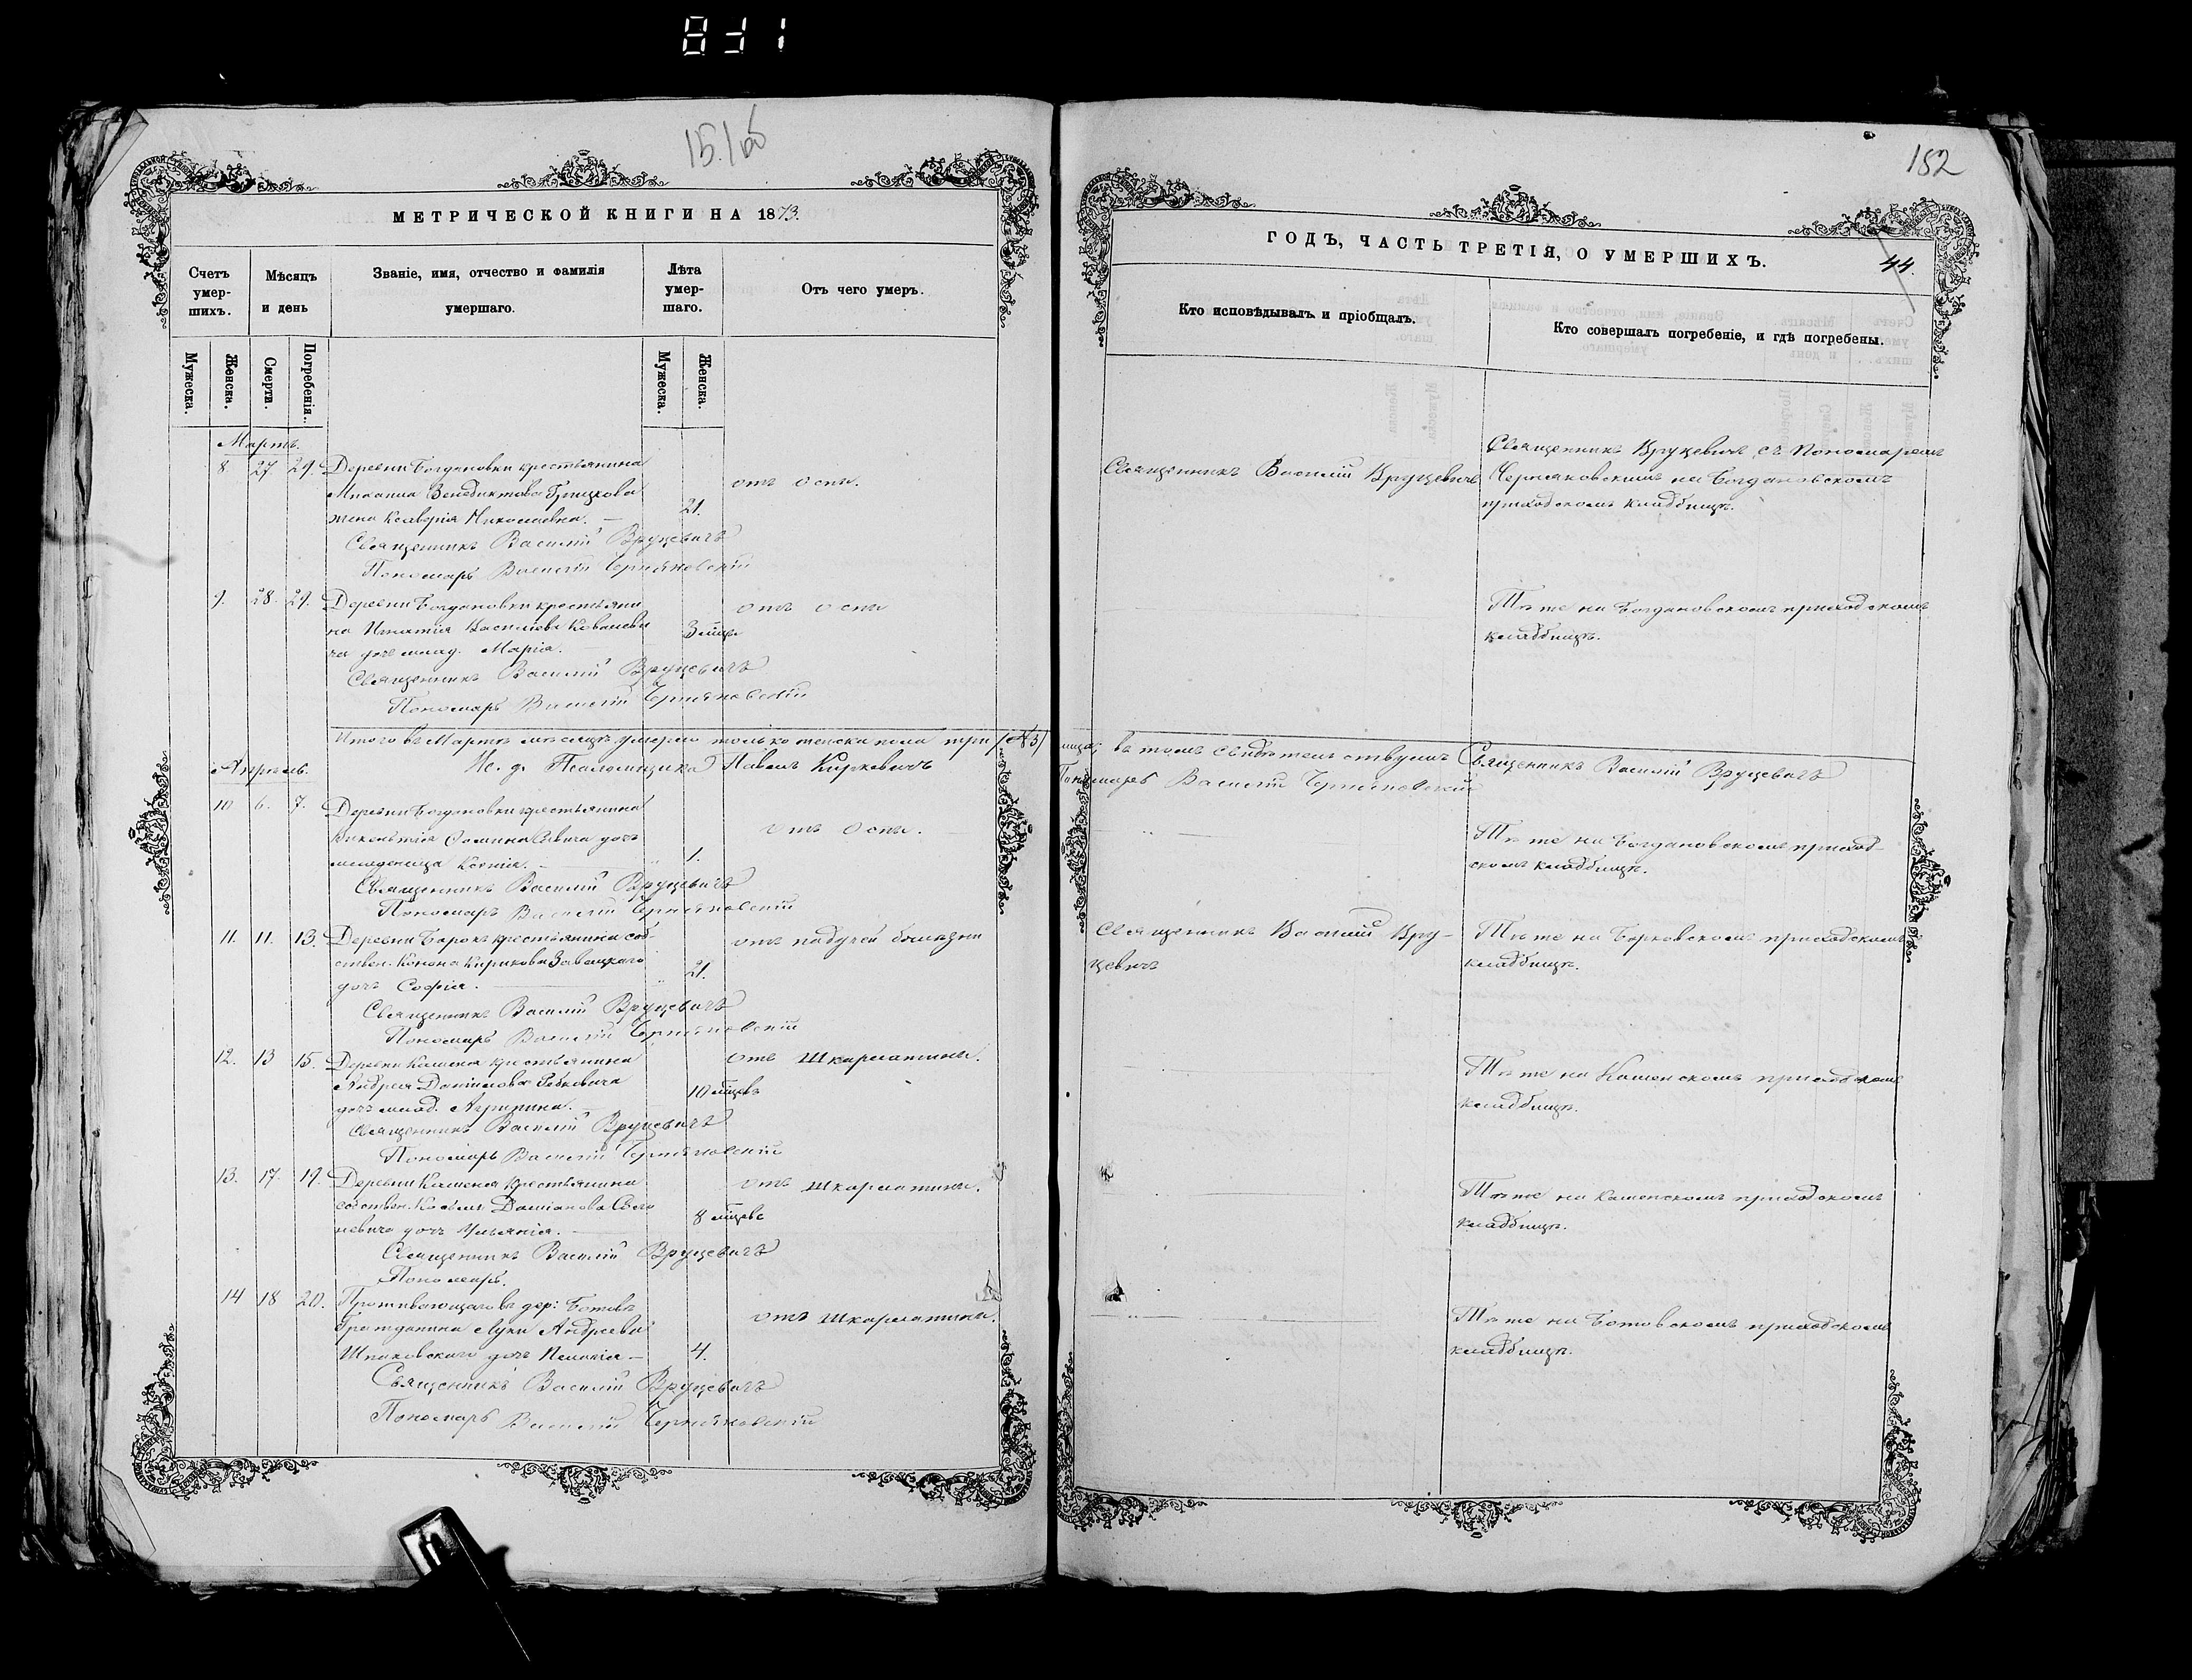 15.1об
182
МЕТРИЧЕСКОЙ КНИГИ НА 1873.
Счетъ умер-шихъ.
Мѣсяцъ и день
Званіе, имя, отчество и фамилія умершаго.
Лѣта умер-шаго.
Отъ чего умеръ.
Мужеска.
Женска.
Смерти.
Погребенія.
Мужеска.
Женска.
Мартъ.
8 27 29. Деревни Богдановки крестьянина
Венедиктова Грицкова
21. отъ оспы.
жена Николаевна.
Священникъ Василій Вруцевичъ
Пономарь Василій Черняковскій
9. 28. 29. Деревни Богдановки крестьяни
на Игнатія Васильева Ковалеви
3 мѣсц отъ оспы
ча дочь млад. Марія.
Священникъ Василій Вруцевичъ
Пономарь Василій Черняковскій
Итого въ Мартѣ мѣсяцѣ умерло только женска пола три /№3/
И. д. Псаломщика Павелъ
Апрѣль.
10 6. 7. Деревни Богдановки крестьянина
Викентія дочь
младеница Ксенія. 1. отъ Оспы.
Священникъ Василій Вруцевичъ
Пономарь Василій Черняковскій
11. 11. 13. Деревни Борокъ крестьянина соб-
ствен. Конона Кирикова Завацкаго
21. отъ падучей болѣзни
дочь Софія.
Священникъ Василій Вруцевичъ
Пономарь Василій Черняковскій
12. 13 15. Деревни Каменя крестьянина
Андрея Данилова
10 мѣсцевъ отъ Шкарлатины.
дочь млад. Агрипина.
Священникъ Василій Вруцевичъ
Пономарь Василій Черняковскій
13. 17. 19. Деревни Каменя крестьянина
собствен. Косьмы Даміанова
8 мѣсцевъ отъ Шкарлатины.
невича дочь Ульянія.
Священникъ Василій Вруцевичъ
Пономарь.
14 18 20. Проживающаго въ дер: Ботовѣ
гражданина Луки Андреева
Шпаковскаго дочь Пелагія 4. отъ Шкарлатины.
Священникъ Василій Вруцевичъ
Пономарь Василій Черняковскій
ГОДЪ, ЧАСТЬ ТРЕТІЯ, О УМЕРШИХЪ.
44.
Кто исповѣдывалъ и пріобщалъ.
Кто совершалъ погребеніе, и гдѣ погребены.
Священникъ Василій Вруцевичъ
Священникъ Вруцевичъ съ Пономаремъ
Черняковскимъ на Богдановскомъ
приходскомъ кладбищѣ.
Тѣ же на Богдановскомъ приходскомъ
кладбищѣ.
лица; въ томъ свидѣтельствуемъ Священникъ Василій Вруцевичъ
Пономарь Василій Черняковскій
Тѣ же на Богдановскомъ приход-
скомъ кладбищѣ.
Священникъ Василій Вру-
цевичъ
Тѣ же на Борковскомъ приходскомъ
кладбищѣ.
Тѣ же на Каменскомъ приходскомъ
кладбищѣ.
Тѣ же на Каменскомъ приходскомъ
кладбищѣ.
Тѣ же на Ботовскомъ приходскомъ
кладбищѣ.